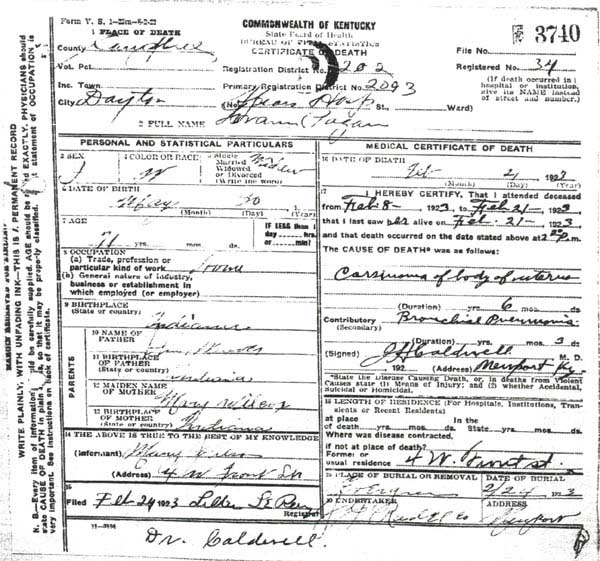 Form V. S. 1
1 PLACE OF DEATH
COMMONWEALTH OF KENTUCKY
State Board of Health
BUREAU OF VITAL STATISTICS
CERTIFICATE OF DEATH
3740
File No.
County Campbell
Vot. Pct.
Registration District No. 202
Registered No. 34
Inc. Town
Primary Registration District No. 2093
(If death occurred in a hospital or institution, give its NAME instead of street and number.)
City Dayton
(No. Spears Hosp St., Ward)
2 FULL NAME
PERSONAL AND STATISTICAL PARTICULARS
3 SEX
4 COLOR OR RACE W
5 Single
Married
Widowed
or Divorced
(Write the word)
6 DATE OF BIRTH
(Month) (Day) (Year)
7 AGE
71 yrs. mos. ds.
IF LESS than 1 day hrs. or min?
8 OCCUPATION
(a) Trade, profession or
particular kind of work
(b) General nature of industry,
business or establishment in
which employed (or employer)
9 BIRTHPLACE
(State or country)
Indiana
PARENTS
10 NAME OF
FATHER
11 BIRTHPLACE
OF FATHER
(State or country) Indiana
12 MAIDEN NAME
OF MOTHER
Mary Wilson
13 BIRTHPLACE
OF MOTHER
(State or country) Indiana
14 THE ABOVE IS TRUE TO THE BEST OF MY KNOWLEDGE
(Informant) Mary
(Address) 4 W Front St
15
Filed Feb 24 1923
Registrar
MEDICAL CERTIFICATE OF DEATH
16 DATE OF DEATH
Feb 21, 1923
(Month) (Day) (Year)
17 I HEREBY CERTIFY, That I attended deceased
from Feb 8- 1923, to Feb 21- 1923
that I last saw her alive on Feb - 21 - 1923
and that death occurred on the date stated above at 2 P m.
The CAUSE OF DEATH* was as follows:
Carsinoma of body of uterus
(Duration) yrs. 6 mos. ds.
Contributory Bronchial Pneumonia
(Secondary)
(Duration) yrs. mos. 3 ds.
(Signed) J H Caldwell M. D.
192 (Address) Newport Ky.
*State the Disease Causing Death, or, in deaths from Violent
Causes state (1) Means of Injury; and (2) whether Accidental,
Suicidal or Homicidal.
18 LENGTH OF RESIDENCE (For Hospitals, Institutions, Transients or Recent Residents)
At place of death yrs. mos. ds. In the State yrs. mos. ds.
Where was disease contracted,
if not at place of death?
Former or
usual residence 4 W. Front st.
19 PLACE OF BURIAL OR REMOVAL
DATE OF BURIAL
Evergreen
2/24 1923
20 UNDERTAKER
ADDRESS
Newport
Dr. Caldwell.
MARGIN RESERVED FOR BINDING
WRITE PLAINLY, WITH UNFADING INK—THIS IS A PERMANENT RECORD